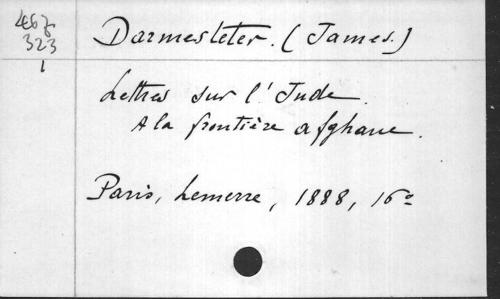 467
323
1
Darmesteter. (James.)
Lettres sur l'Inde.
A la frontière afghane.
Paris, Lemerre, 1888, 16º